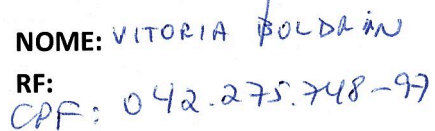 NOME: VITORIA BOLDRIN
RF:
CPF: 042.275.748-97